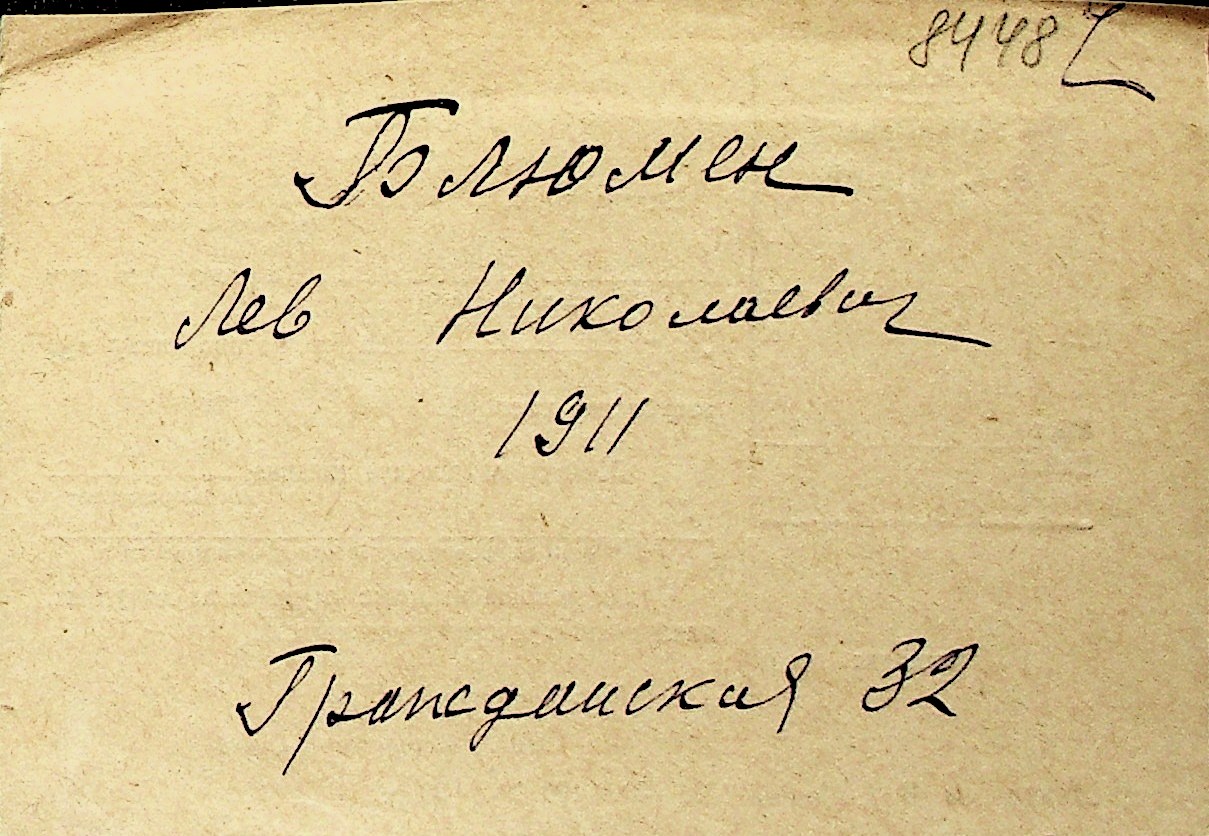 8448
Блюмен
Лев Николаевич
1911
Гражданская 32